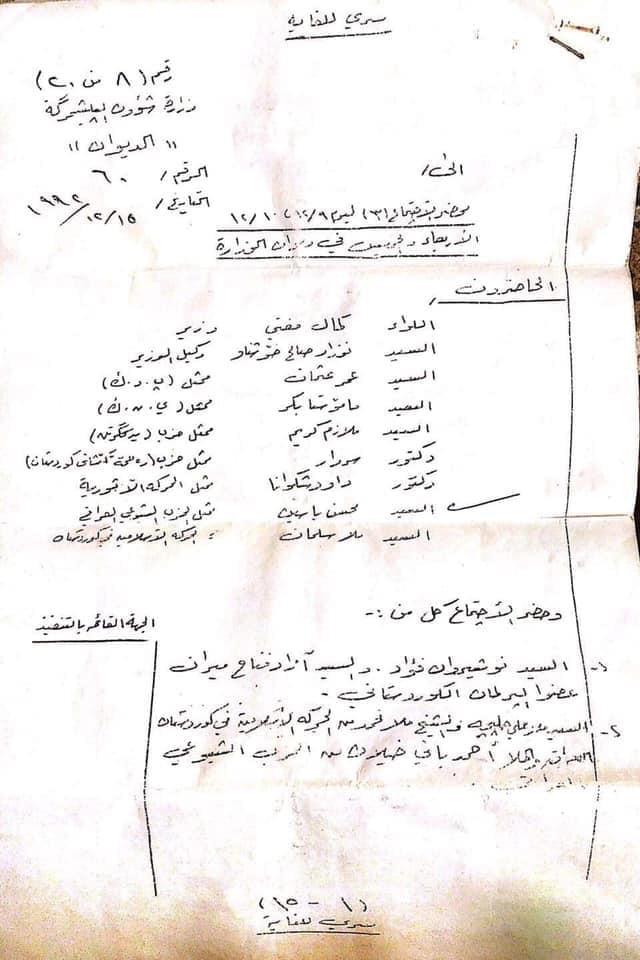 سري للغاية
رقم (٨ من ٢٠)
وزارة شؤون البيشمركة
((الديوان))
الرقم / ٦٠
التاريخ / ١٥ / ١٢ / ١٩٩٢
الى /
محضر الاجتماع (٣) ليوم ١٢/٩ ، ١٢/١٠
الأربعاء والخميس في ديوان الوزارة
الحاضرون /
اللواء كمال مفتي وزير
السيد نوزاد صالح خوشناو وكيل الوزير
السيد عمر عثمان ممثل (پ.د.ك)
السيد مامۆستا بكر ممثل (ي.ن.ك)
السيد ملازم كريم ممثل حزب
دكتور سردار ممثل حزب كوردستان)
دكتور داود ممثل الحركة الاشورية
السيد محسن ياسين ممثل الحزب الشيوعي العراقي
السيد ملا سلمان = الحركة الاسلامية في كوردستان
وحضر الأجتماع كل من :-
الجهة القائمه بالتنفيذ
١- السيد نوشيروان فؤاد . والسيد آزاد فتاح ميران
عضوا البرلمان الكوردستاني -
٢- السيد ملا علي والشيخ ملا من الحركة الإسلامية في كوردستان
العراق أحمد باني خيلان من الحزب الشيوعي
(١ - ١٥)
سري للغاية